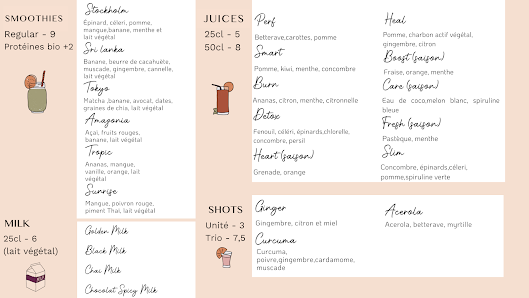 SMOOTHIES
Regular - 9
Protéines bio +2
Stockholm
Épinard, céleri, pomme,
mangue,banane, menthe et
lait végétal
Sri lanka
Banane, beurre de cacahuète,
muscade, gingembre, cannelle,
lait végétal
Tokyo
Matcha ,banane, avocat, dates,
graines de chia, lait végétal
Amagonia
Açaï, fruits rouges,
banane, lait végétal
Tropic
Ananas, mangue,
vanille, orange, lait
végétal
Sunrise
Mangue, poivron rouge,
piment Thaï, lait végétal
MILK
25cl - 6
(lait végétal)
Golden Milk
Black Milk
Chaï Milk
Chocolat Spicy Milk
JUICES
25cl - 5
50cl - 8
Perf
Betterave,carottes, pomme
Smart
Pomme, kiwi, menthe, concombre
Burn
Ananas, citron, menthe, citronnelle
Detox
Fenouil, céléri, épinards,chlorelle,
concombre, persil
Heart (saison)
Grenade, orange
Heal
Pomme, charbon actif végétal,
gingembre, citron
Boost (saison)
Fraise, orange, menthe
Care (saison)
Eau de coco,melon blanc, spiruline
bleue
Fresh (saison)
Pastèque, menthe
Slim
Concombre, épinards,céleri,
pomme,spiruline verte
SHOTS
Unité - 3
Trio - 7,5
Ginger
Gingembre, citron et miel
Curcuma
Curcuma,
poivre,gingembre,cardamome,
muscade
Acerola
Acerola, betterave, myrtille